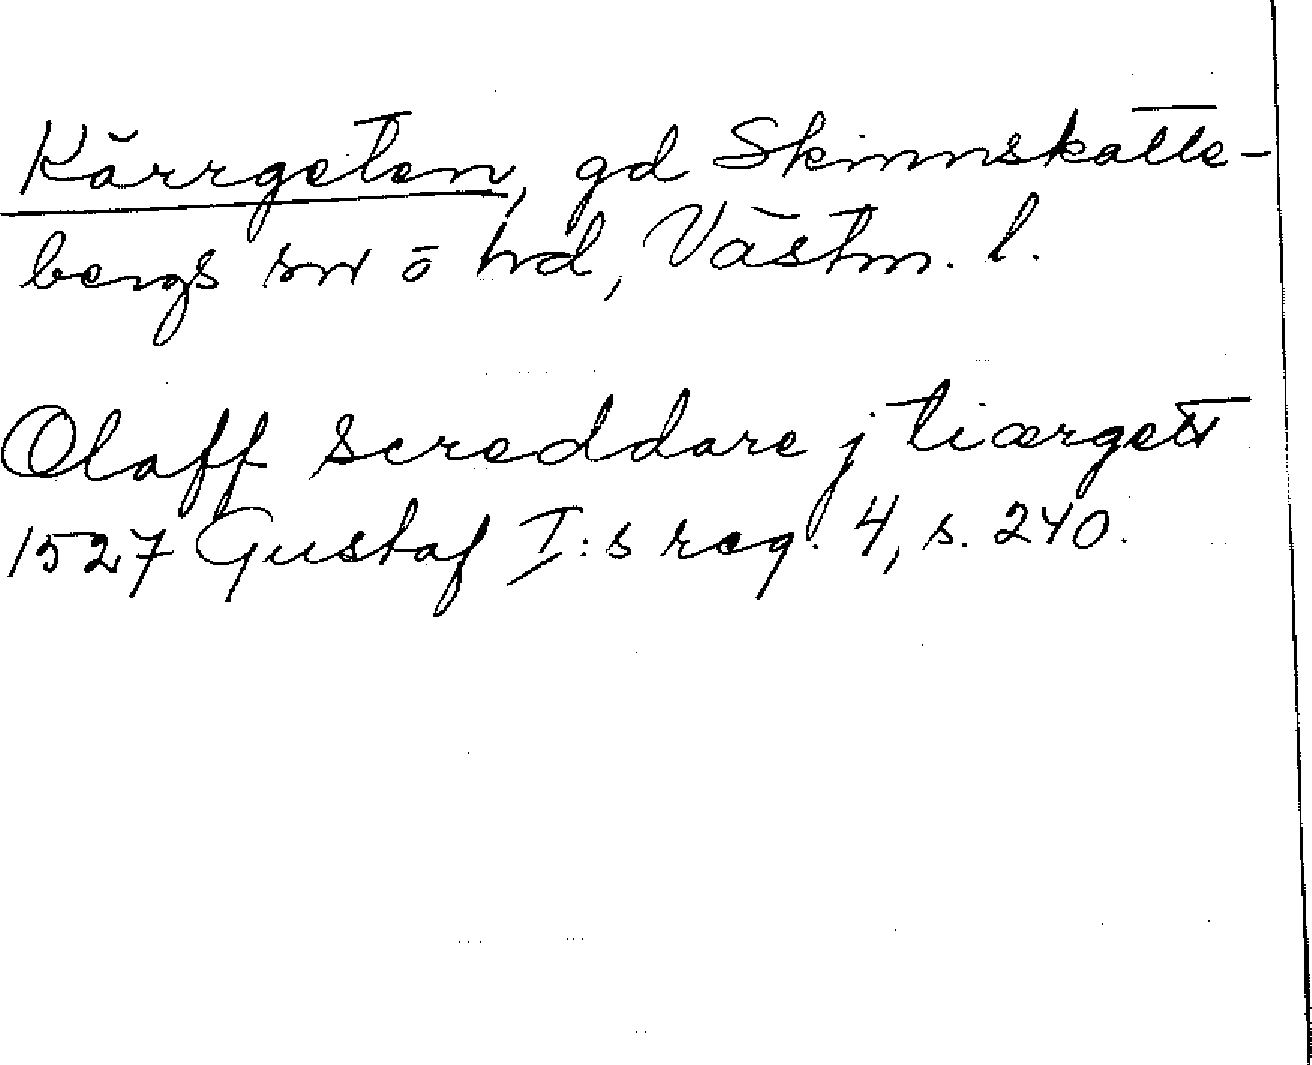 Kärrgeten, gd Skinnskatte-
bergs sn o hd, Västm. l.
Olaff screddare j tiærgett
1527 Gustaf I:s reg. 4, s. 240.